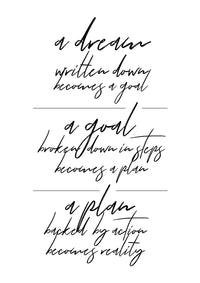 a dream
written down
becomes a goal
a goal
broken down in steps
becomes a plan
a plan
backed by action
becomes reality